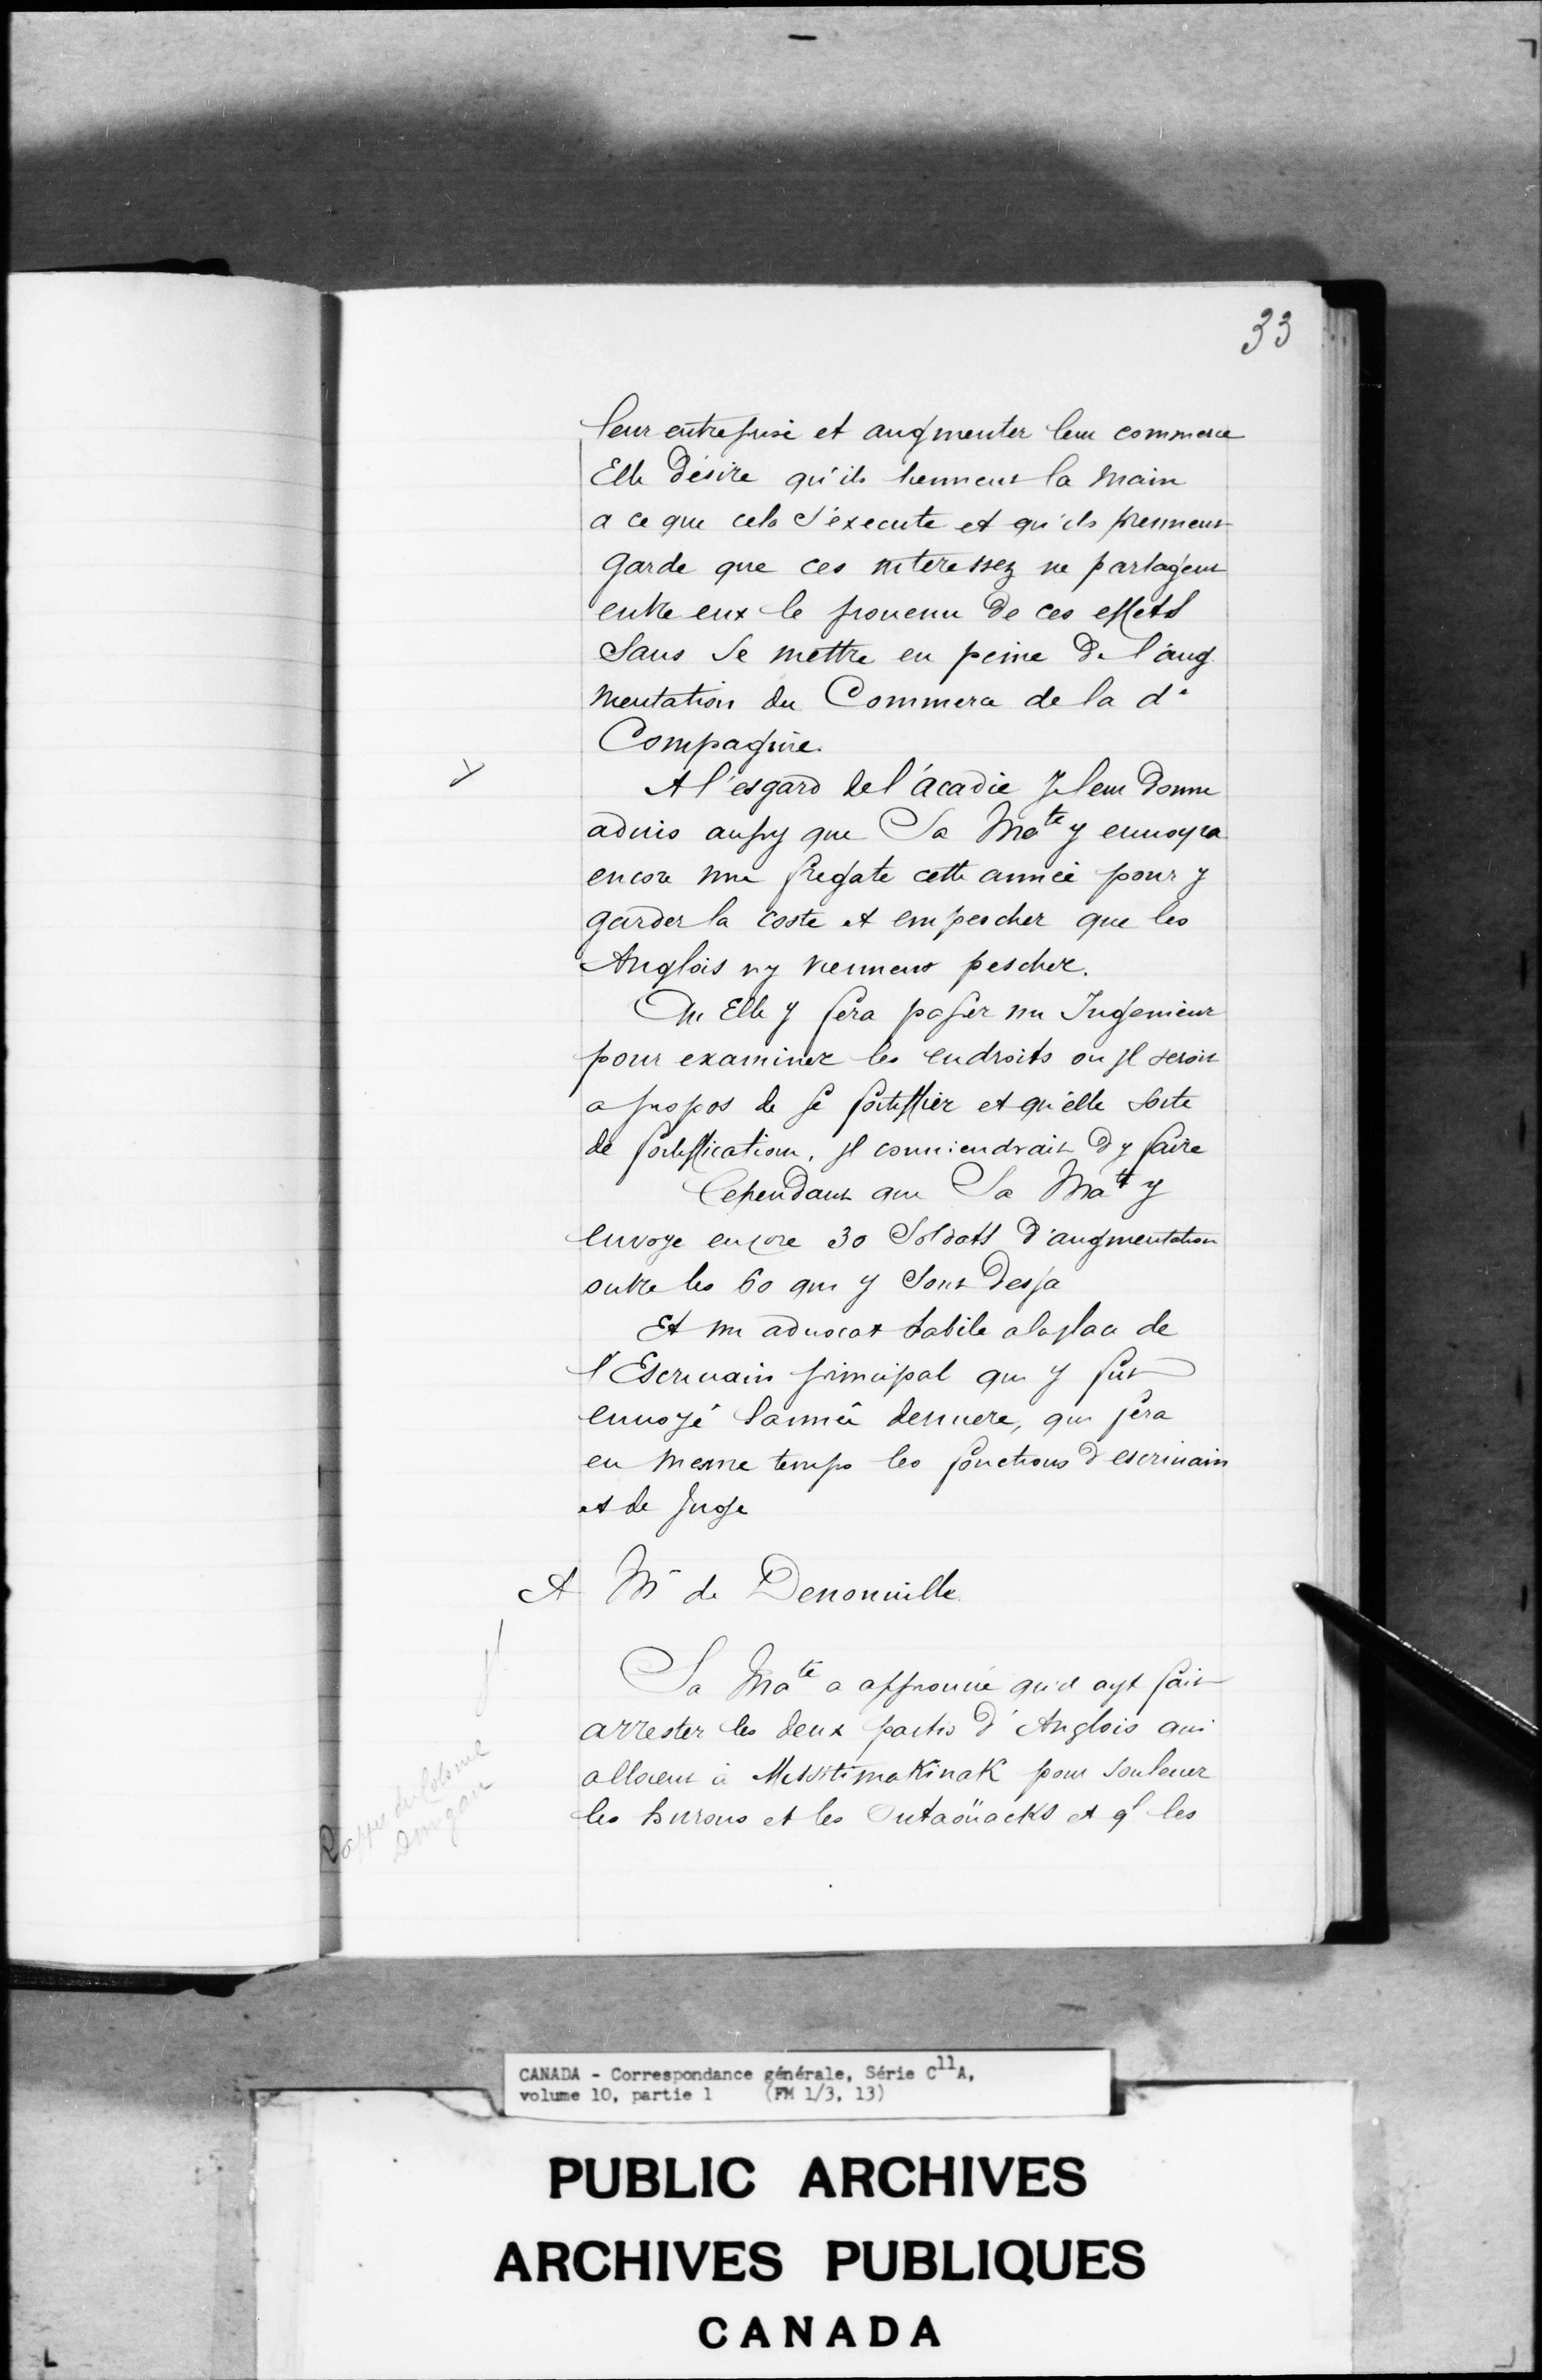 33
leur entreprise et augmenter leur commerce
Elle Désire qu'ils tiennent la main
a ce que cela s'execute et qu'ils prennent
garde que ces interessez ne partagent
entre eux le provenu de ces effets
sans se mettre en peine de l'aug
mentation du Commerce de la de
Compagnie.
A l'esgard de l'acadie Je leur donne
aduis aussy que Sa Mate y enuoyra
encore une fregate cette année pour y
garder la coste et empescher que les
Anglois ny viennent pescher.
Qu Elle y fera passer un Ingenieur
pour examiner les endroits ou Jl seroit
a propos de se fortiffier et qu'elle sorte
de fortiffication, Jl conuiendrait d'y faire
Cependant que Sa Maté y
envoye encore 30 Soldats d'augmentation
outre les 60 qui y sont desja
Et un aduocat habile a la place de
l'Escriuain principal qui y fut
enuoyé l'année derniere, qui fera
en mesme temps les fonctions d'escriuain
et de Juge
A Mr de Denonuille
Sa Mate a approuué qu'il ayt fait
arrester les deux partis d'Anglois qui
alloient à Missitimakinak pour souleuer
les hurons et les Outaoüacks et ql les
Rappel du Colonel
Dongan
CANADA - Correspondance générale, Série C11A,
volume 10, partie 1 (FM 1/3, 13)
PUBLIC ARCHIVES
ARCHIVES PUBLIQUES
CANADA